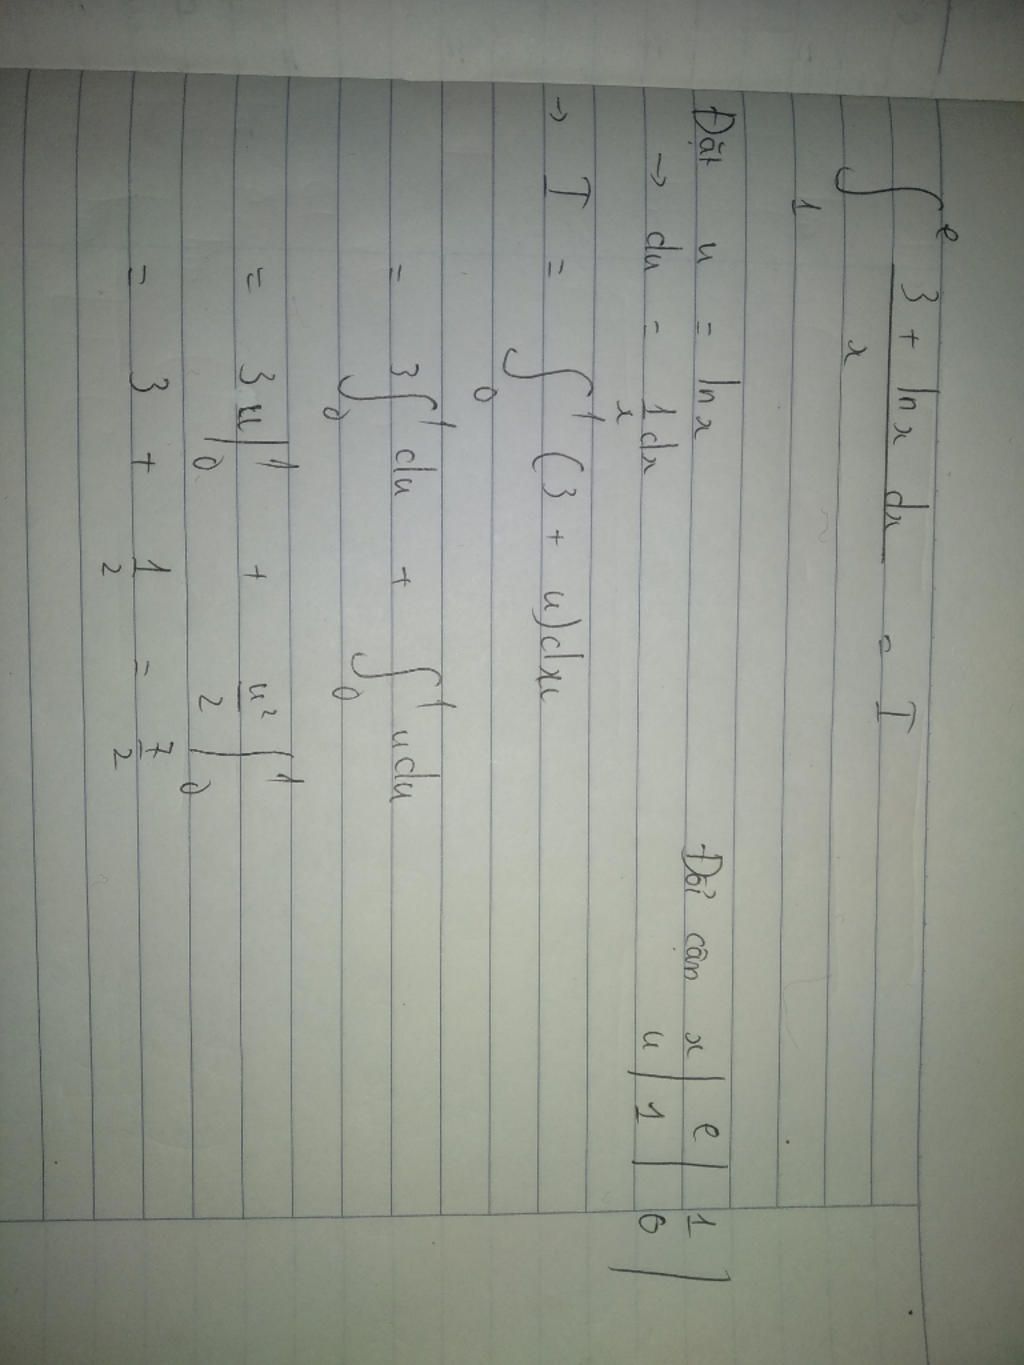 ∫₁ᵉ (3 + ln x)/x dx = I
Đặt u = ln x Đổi cận x | e | 1 |
→ du = 1/x dx u | 1 | 0 |
→ I = ∫₀¹ (3 + u) du
= 3 ∫₀¹ du + ∫₀¹ u du
= 3 u |₀¹ + u²/2 |₀¹
= 3 + 1/2 = 7/2